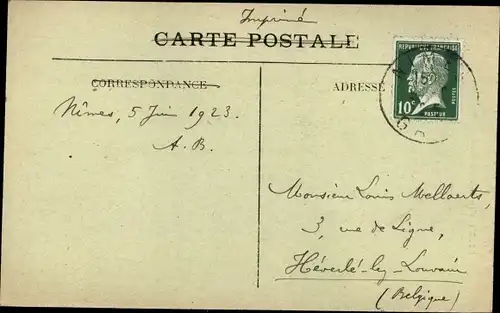 Imprimé
CARTE POSTALE
CORRESPONDANCE
ADRESSE
REPUBLIQUE FRANÇAISE
10c
POSTES
PASTEUR
Nîmes, 5 Juin 1923.
A. B.
Monsieur Louis Mellaerts,
3, rue de Ligne,
Héverlé-lez-Louvain
(Belgique)